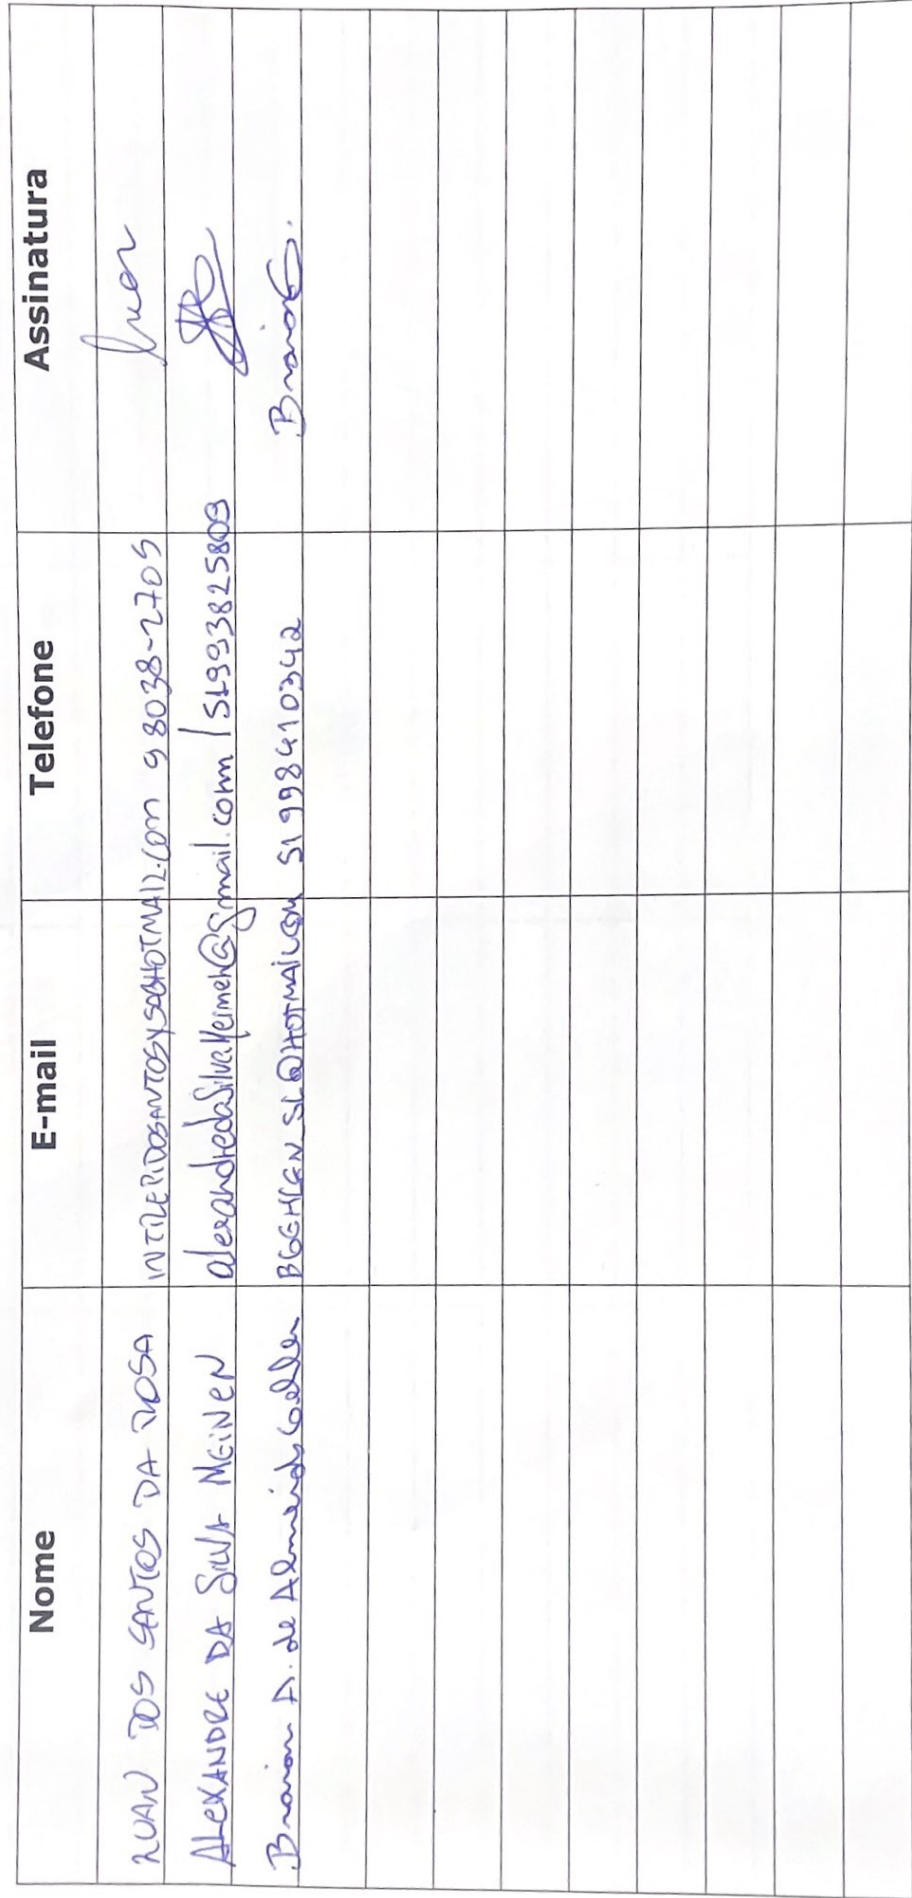 Nome E-mail Telefone Assinatura
LUAN DOS SANTOS DA ROSA 98038-2705 Luan
ALEXANDRE DA SILVA MEINEN alexandredaSilvaMeinen@gmail.com / 51993825809
Braion A. de Almeida Gehlen BGEHLEN_SL@HOTMAIL.COM 51 998410342 Braion G.